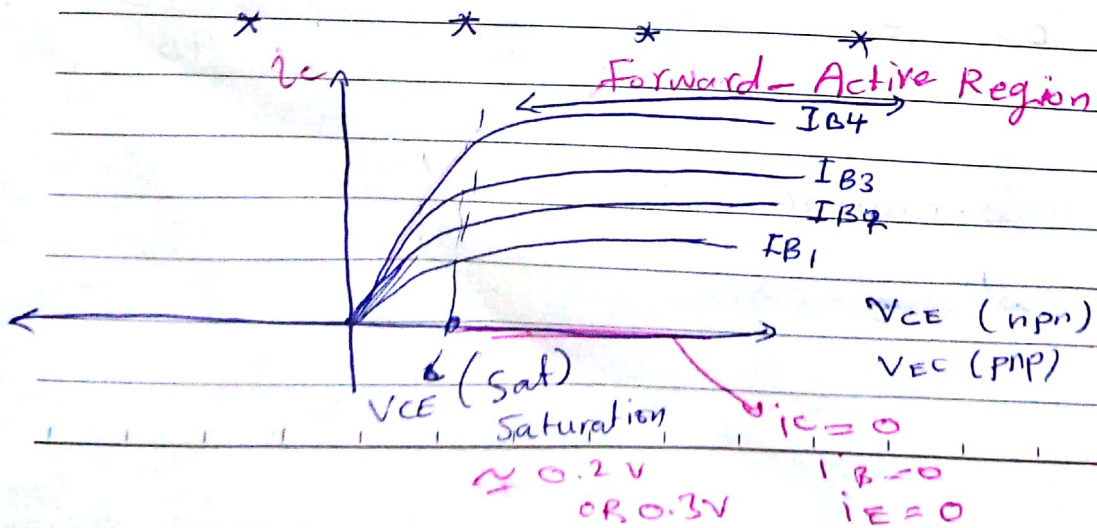 * * * *
ic
Forward-Active Region
IB4
IB3
IB2
IB1
VCE (npn)
VEC (pnp)
VCE (Sat)
Saturation
≃ 0.2 V
OR 0.3V
ic = 0
iB = 0
iE = 0